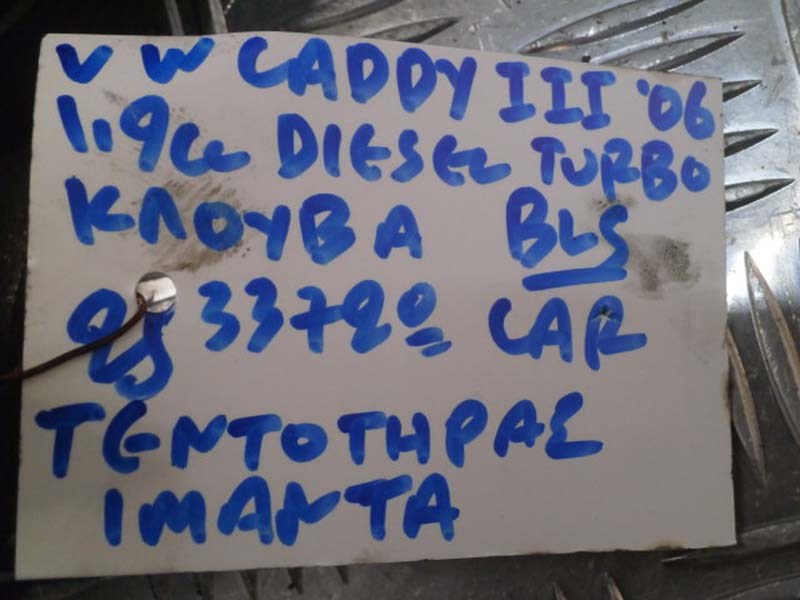 VW CADDY III '06
1.9cc DIESEL TURBO
ΚΛΟΥΒΑ BLS
CAR
ΤΕΝΤΟΤΗΡΑΣ
ΙΜΑΝΤΑ